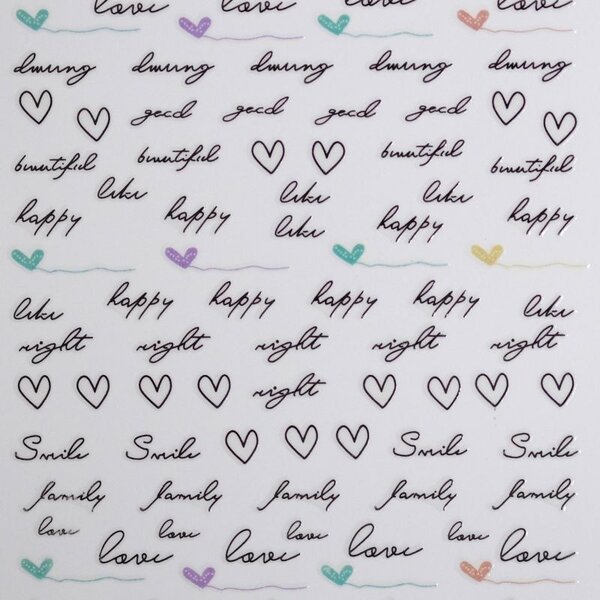 love love
good good good good
beautiful beautiful beautiful beautiful
like like like
happy happy like happy happy
happy happy happy happy
like like
right right right right right
right
Smile Smile Smile Smile
family family family family family
love love love love
love love love love